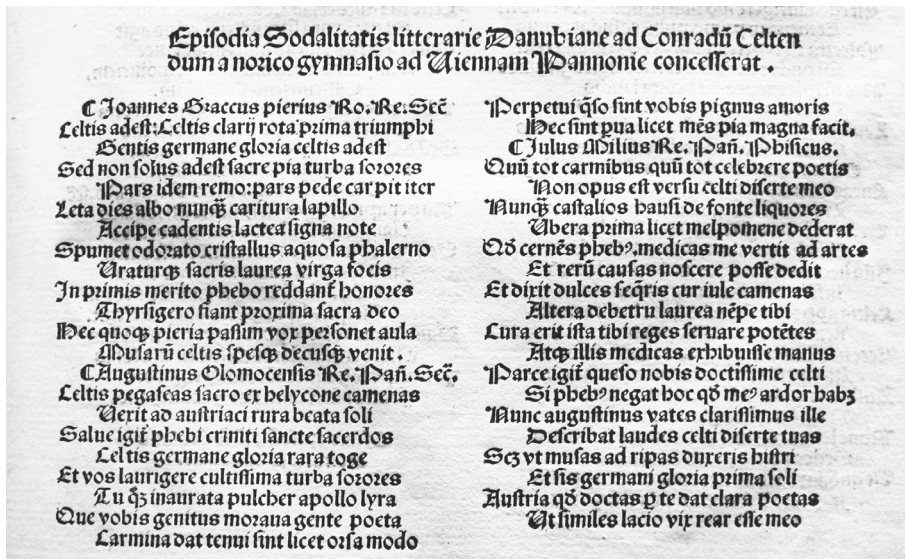 Episodia Sodalitatis litterarie Danubiane ad Conradū Celten
dum a norico gymnasio ad Uiennam Pannonie concesserat .
⸿ Joannes Graccus pierius Ro. Re. Secr̄
Celtis adest: Celtis clarij rota prima triumphi
Gentis germane gloria celtis adest
Sed non solus adest sacre pia turba sorores
Pars idem remo: pars pede carpit iter
Leta dies albo nunq̄ꝫ caritura lapillo
Accipe cadentis lactea signa note
Spumet odorato cristallus aquosa phalerno
Uraturqꝫ sacris laurea virga focis
In primis merito phebo reddant̄ honores
Thyrsigero fiant proxima sacra deo
Nec quoqꝫ pieria passim vox personet aula
Musarū celtis spesqꝫ decusqꝫ venit .
⸿ Augustinus Olomocensis Re. Pan̄. Sec̄.
Celtis pegaseas sacro ex helycone camenas
Uexit ad austriaci rura beata soli
Salue igit̄ phebi criniti sancte sacerdos
Celtis germane gloria rara toge
Et vos laurigere cultissima turba sorores
Tu q̄ꝫ inaurata pulcher apollo lyra
Que vobis genitus moraua gente poeta
Carmina dat tenui sint licet orsa modo
Perpetui q̄so sint vobis pignus amoris
Hec sint pua licet mēs pia magna facit.
⸿ Julus Milius Re. Pan̄. Phisicus.
Quū tot carmibus quū tot celebrere poetis
Non opus est versu celti diserte meo
Nunq̄ꝫ castalios hausi de fonte liquores
Ubera prima licet melpomene dederat
Qđ cernēs phebꝰ. medicas me vertit ad artes
Et rerū causas noscere posse dedit
Et dixit dulces seq̄ris cur iule camenas
Altera debetru laurea nēpe tibi
Cura erit ista tibi reges seruare potētes
Atqꝫ illis medicas exhibuisse manus
Parce igit̄ queso nobis doctissime celti
Si phebꝰ negat hoc qđ meꝰ ardor habꝫ
Nunc augustinus vates clarissimus ille
Describat laudes celti diserte tuas
Scꝫ vt musas ad ripas duxeris histri
Et sis germani gloria prima soli
Austria qđ doctas ꝑ te dat clara poetas
Ut similes lacio vix rear esse meo